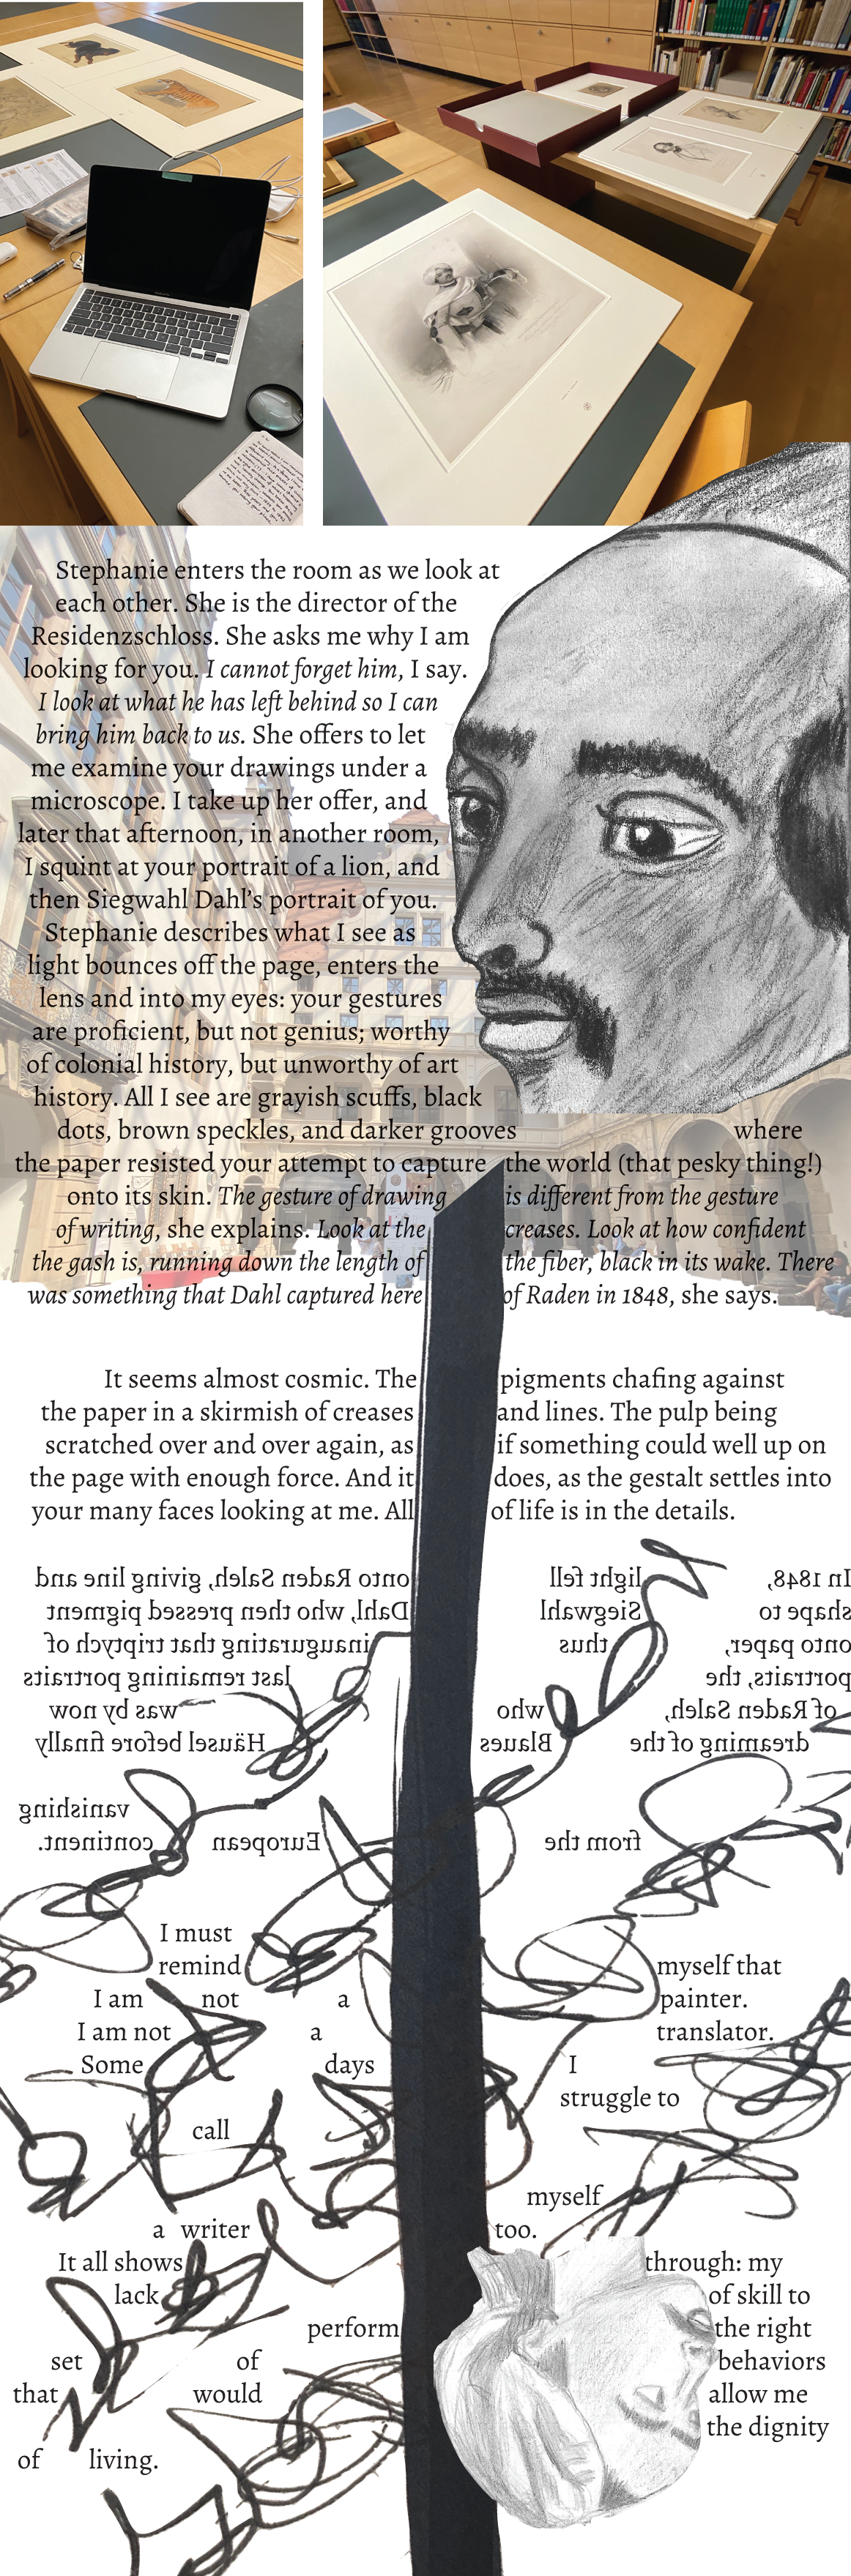 Stephanie enters the room as we look at
each other. She is the director of the
Residenzschloss. She asks me why I am
looking for you. I cannot forget him, I say.
I look at what he has left behind so I can
bring him back to us. She offers to let
me examine your drawings under a
microscope. I take up her offer, and
later that afternoon, in another room,
I squint at your portrait of a lion, and
then Siegwahl Dahl's portrait of you.
Stephanie describes what I see as
light bounces off the page, enters the
lens and into my eyes: your gestures
are proficient, but not genius; worthy
of colonial history, but unworthy of art
history. All I see are grayish scuffs, black
dots, brown speckles, and darker grooves where
the paper resisted your attempt to capture the world (that pesky thing!)
onto its skin. The gesture of drawing is different from the gesture
of writing, she explains. Look at the creases. Look at how confident
the gash is, running down the length of the fiber, black in its wake. There
was something that Dahl captured here of Raden in 1848, she says.
It seems almost cosmic. The pigments chafing against
the paper in a skirmish of creases and lines. The pulp being
scratched over and over again, as if something could well up on
the page with enough force. And it does, as the gestalt settles into
your many faces looking at me. All of life is in the details.
In 1848, light fell onto Raden Saleh, giving line and
shape to Siegwahl Dahl, who then pressed pigment
onto paper, thus inaugurating that triptych of
portraits, the last remaining portraits
of Raden Saleh, who was by now
dreaming of the Blaues Häusel before finally
vanishing
from the European continent.
I must
remind myself that
I am not a painter.
I am not a translator.
Some days I
struggle to
call
myself
a writer too.
It all shows through: my
lack of skill to
perform the right
set of behaviors
that would allow me
the dignity
of living.